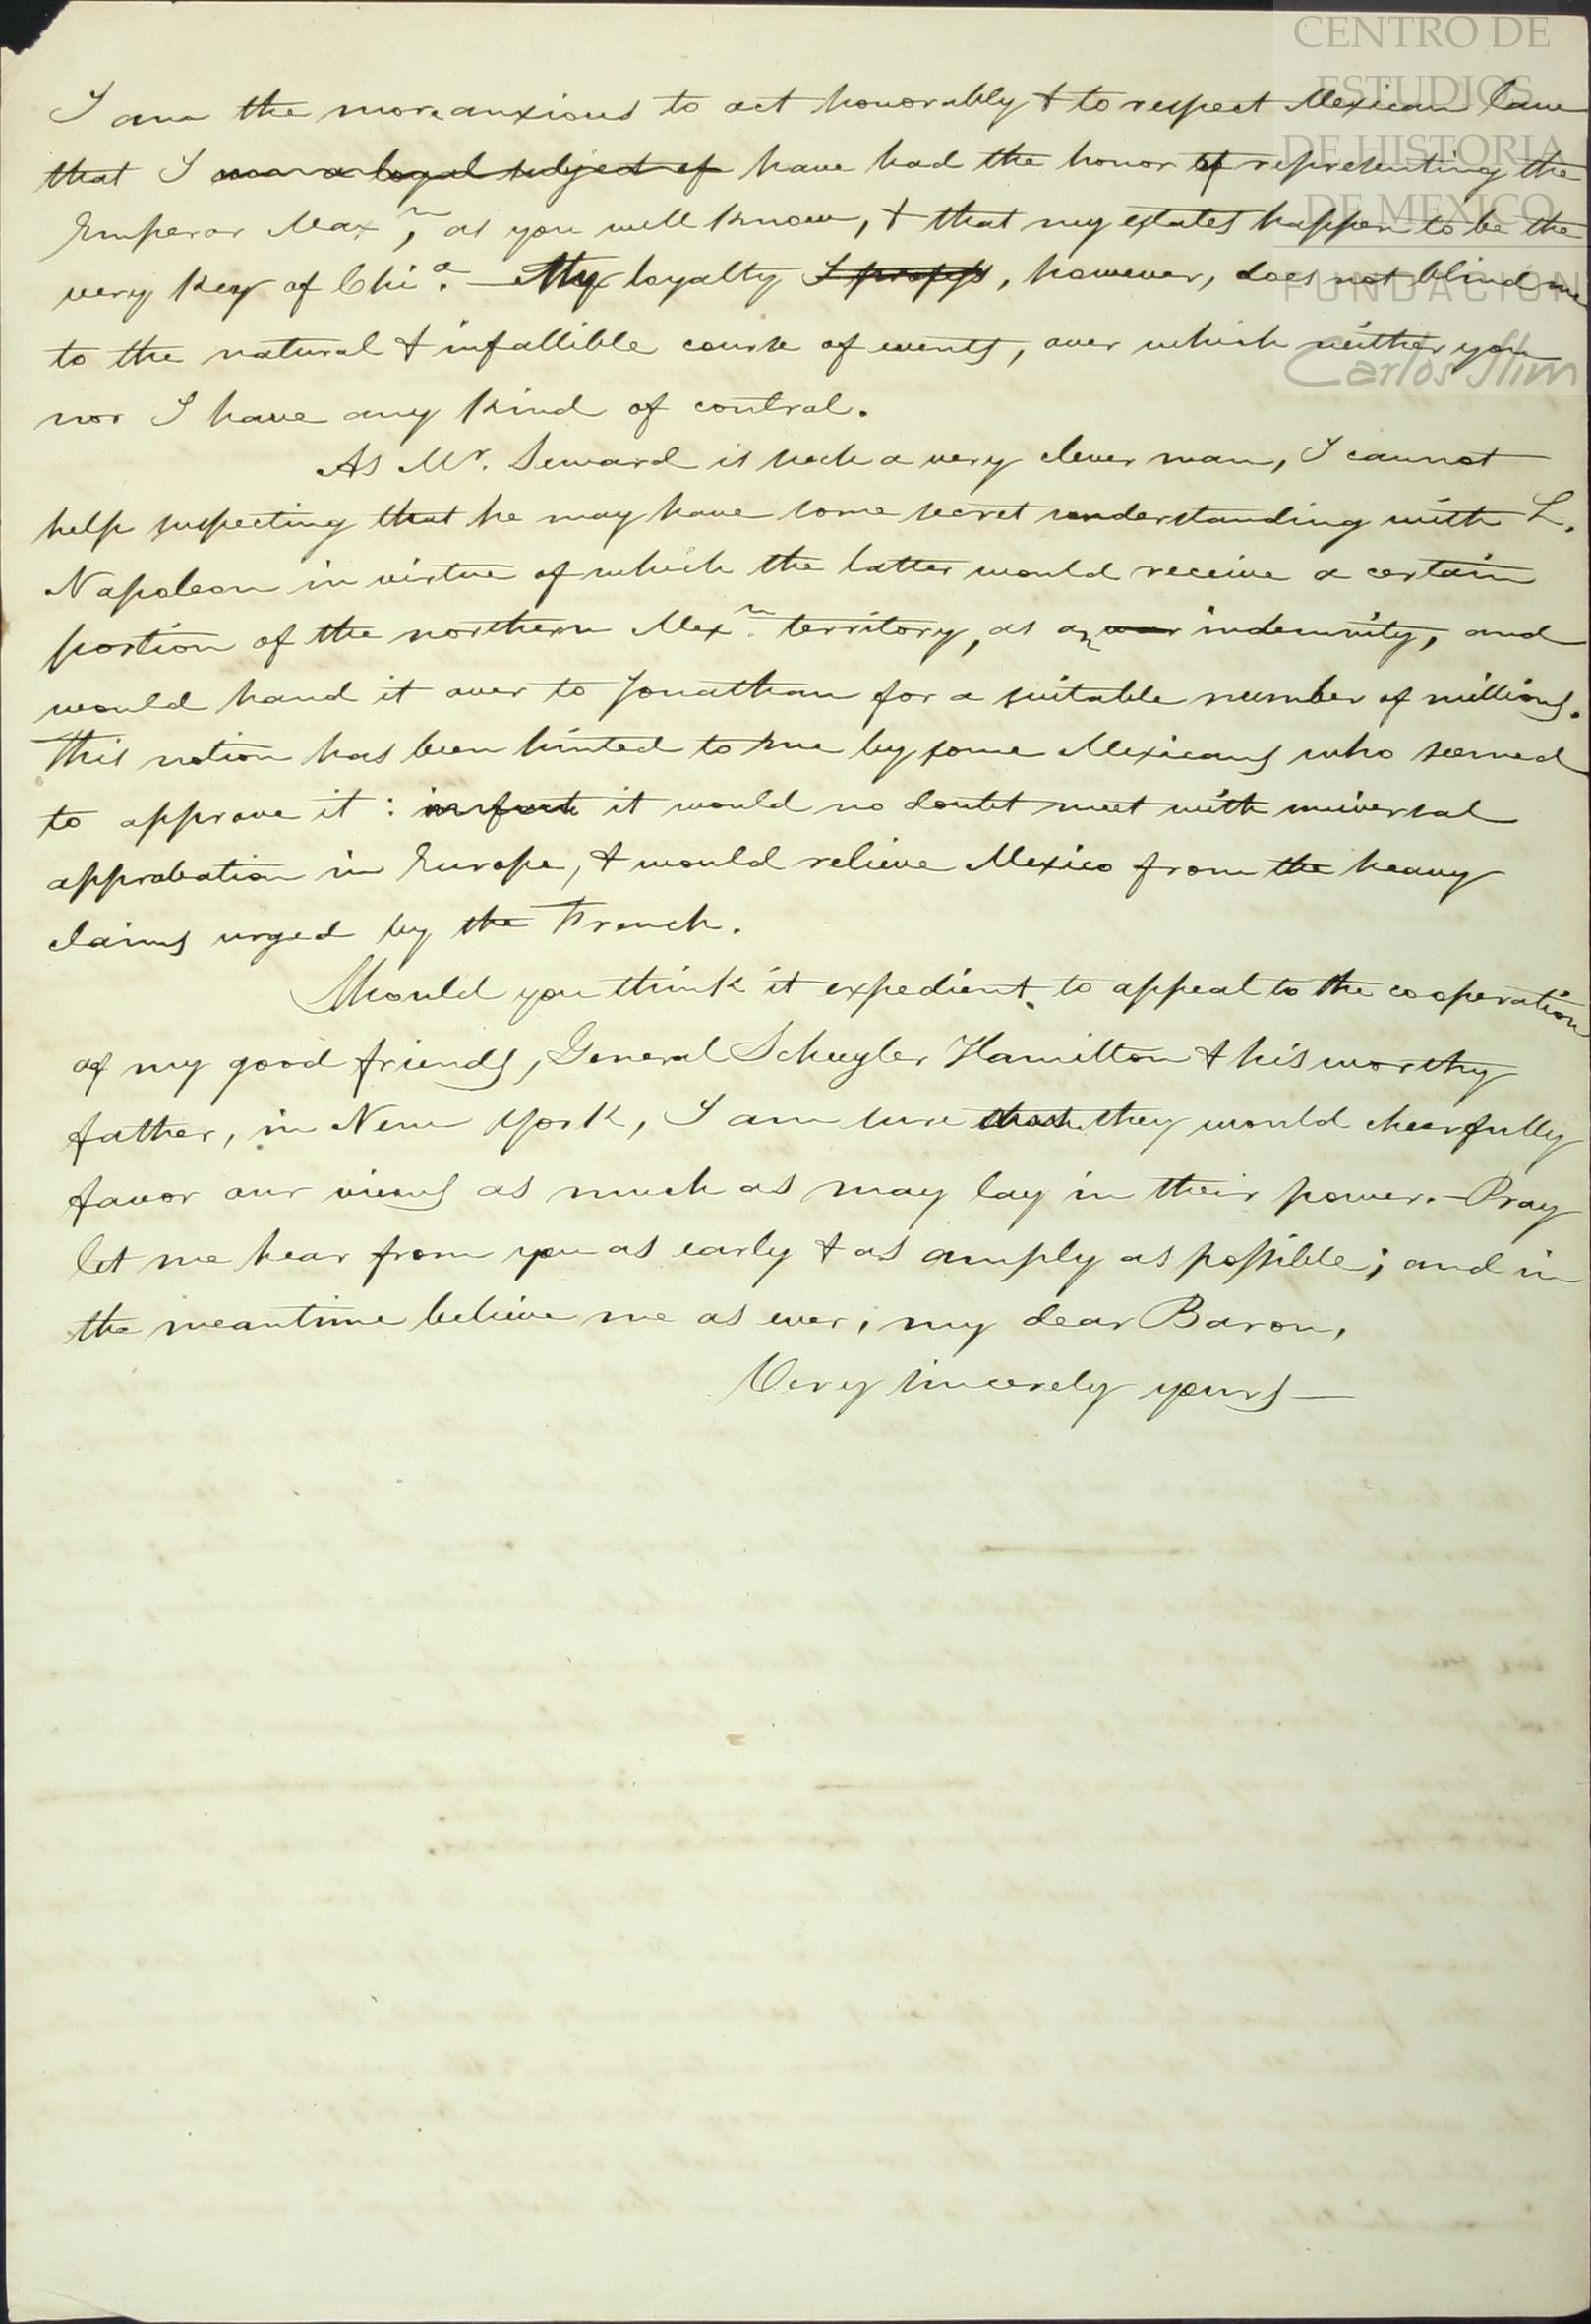 CENTRO DE
ESTUDIOS
DE HISTORIA
DE MEXICO
FUNDACION
Carlos Slim
I am the more anxious to act honorably & to respect Mexican law
that I was a loyal subject of have had the honor of representing the
Emperor Max.n, as you well know, & that my estates happen to be the
very key of Chi.a — My loyalty I profess, however, does not blind me
to the natural & infallible course of events, over which neither you
nor I have any kind of control.
As Mr. Seward is such a very clever man, I cannot
help suspecting that he may have some secret understanding with L.
Napoleon in virtue of which the latter would receive a certain
portion of the northern Mex.n territory, as an war indemnity, and
would hand it over to Jonathan for a suitable number of millions.
This notion has been hinted to me by some Mexicans who seemed
to approve it: in fact it would no doubt meet with universal
approbation in Europe, & would relieve Mexico from the heavy
claims urged by the French.
Should you think it expedient to appeal to the cooperation
of my good friends, General Schuyler Hamilton & his worthy
father, in New York, I am sure that they would cheerfully
favor our views as much as may lay in their power. — Pray
let me hear from you as early & as amply as possible; and in
the meantime believe me as ever, my dear Baron,
Very sincerely yours —